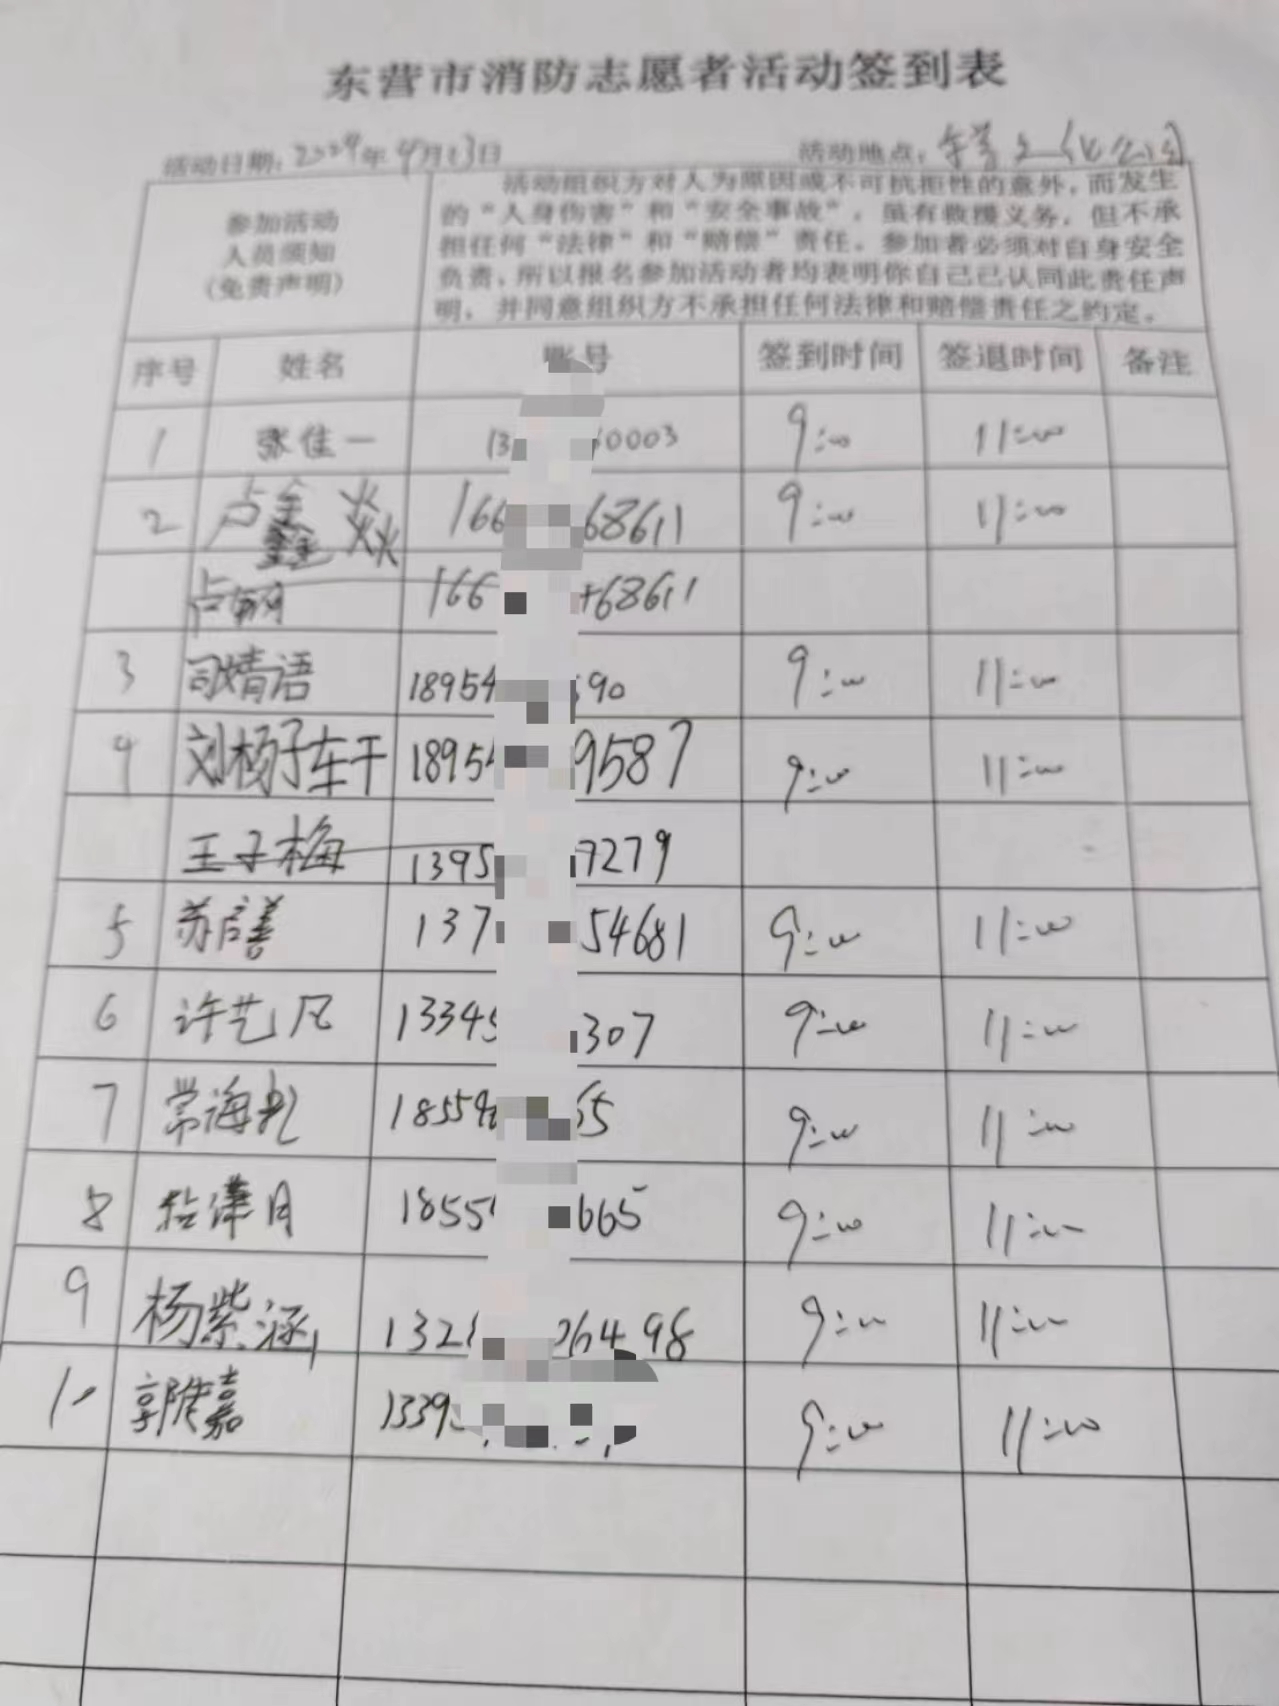 东营市消防志愿者活动签到表
活动日期：2024年4月13日 活动地点：
参加活动
人员须知
（免责声明）
活动组织方对人为原因或不可抗拒性的意外，而发生
的“人身伤害”和“安全事故”，虽有救援义务，但不承
担任何“法律”和“赔偿”责任。参加者必须对自身安全
负责，所以报名参加活动者均表明你自己已认同此责任声
明，并同意组织方不承担任何法律和赔偿责任之约定。
序号 姓名 账号 签到时间 签退时间 备注
1 张佳一 13 0003 9:00 11:00
2 卢鑫焱 166 68611 9:00 11:00
166 68611
3 司婧语 18954 90 9:00 11:00
4 刘杨子轩 1895 9587 9:00 11:00
王子梅 1395 7279
5 苏启善 137 54681 9:00 11:00
6 许艺凡 1334 307 9:00 11:00
7 常海 1855 65 9:00 11:00
8 月 1855 665 9:00 11:00
9 杨紫涵 132 6498 9:00 11:00
10 郭 嘉 1339 9:00 11:00